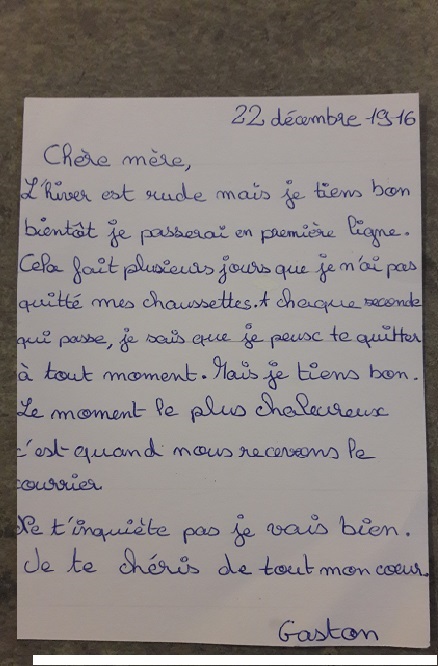 22 décembre 1916
Chère mère,
L'hiver est rude mais je tiens bon
bientôt je passerai en première ligne.
Cela fait plusieurs jours que je n'ai pas
quitté mes chaussettes. A chaque seconde
qui passe, je sais que je peux te quitter
à tout moment. Mais je tiens bon.
Le moment le plus chaleureux
c'est quand nous recevons le
courrier
Ne t'inquiète pas je vais bien.
Je te chéris de tout mon coeur.
Gaston